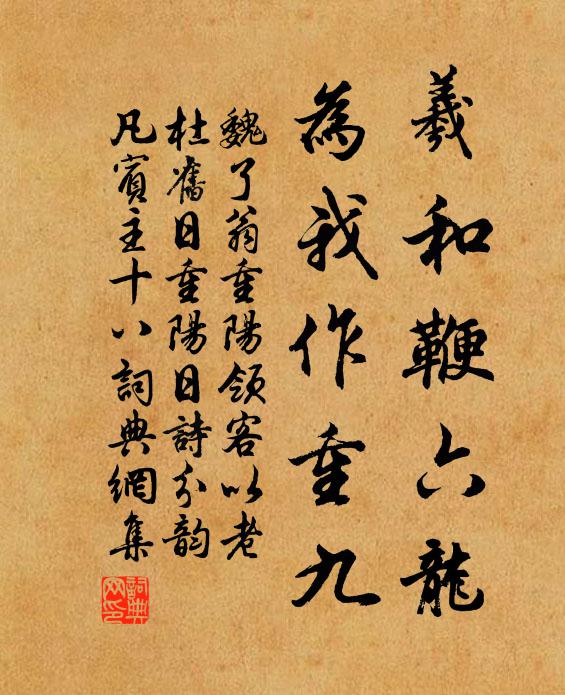 羲和鞭六龍
為我作重九
魏了翁重陽領客以老
杜舊日重陽日詩分韵
凡賓主十八詞典網集
詞典
网印